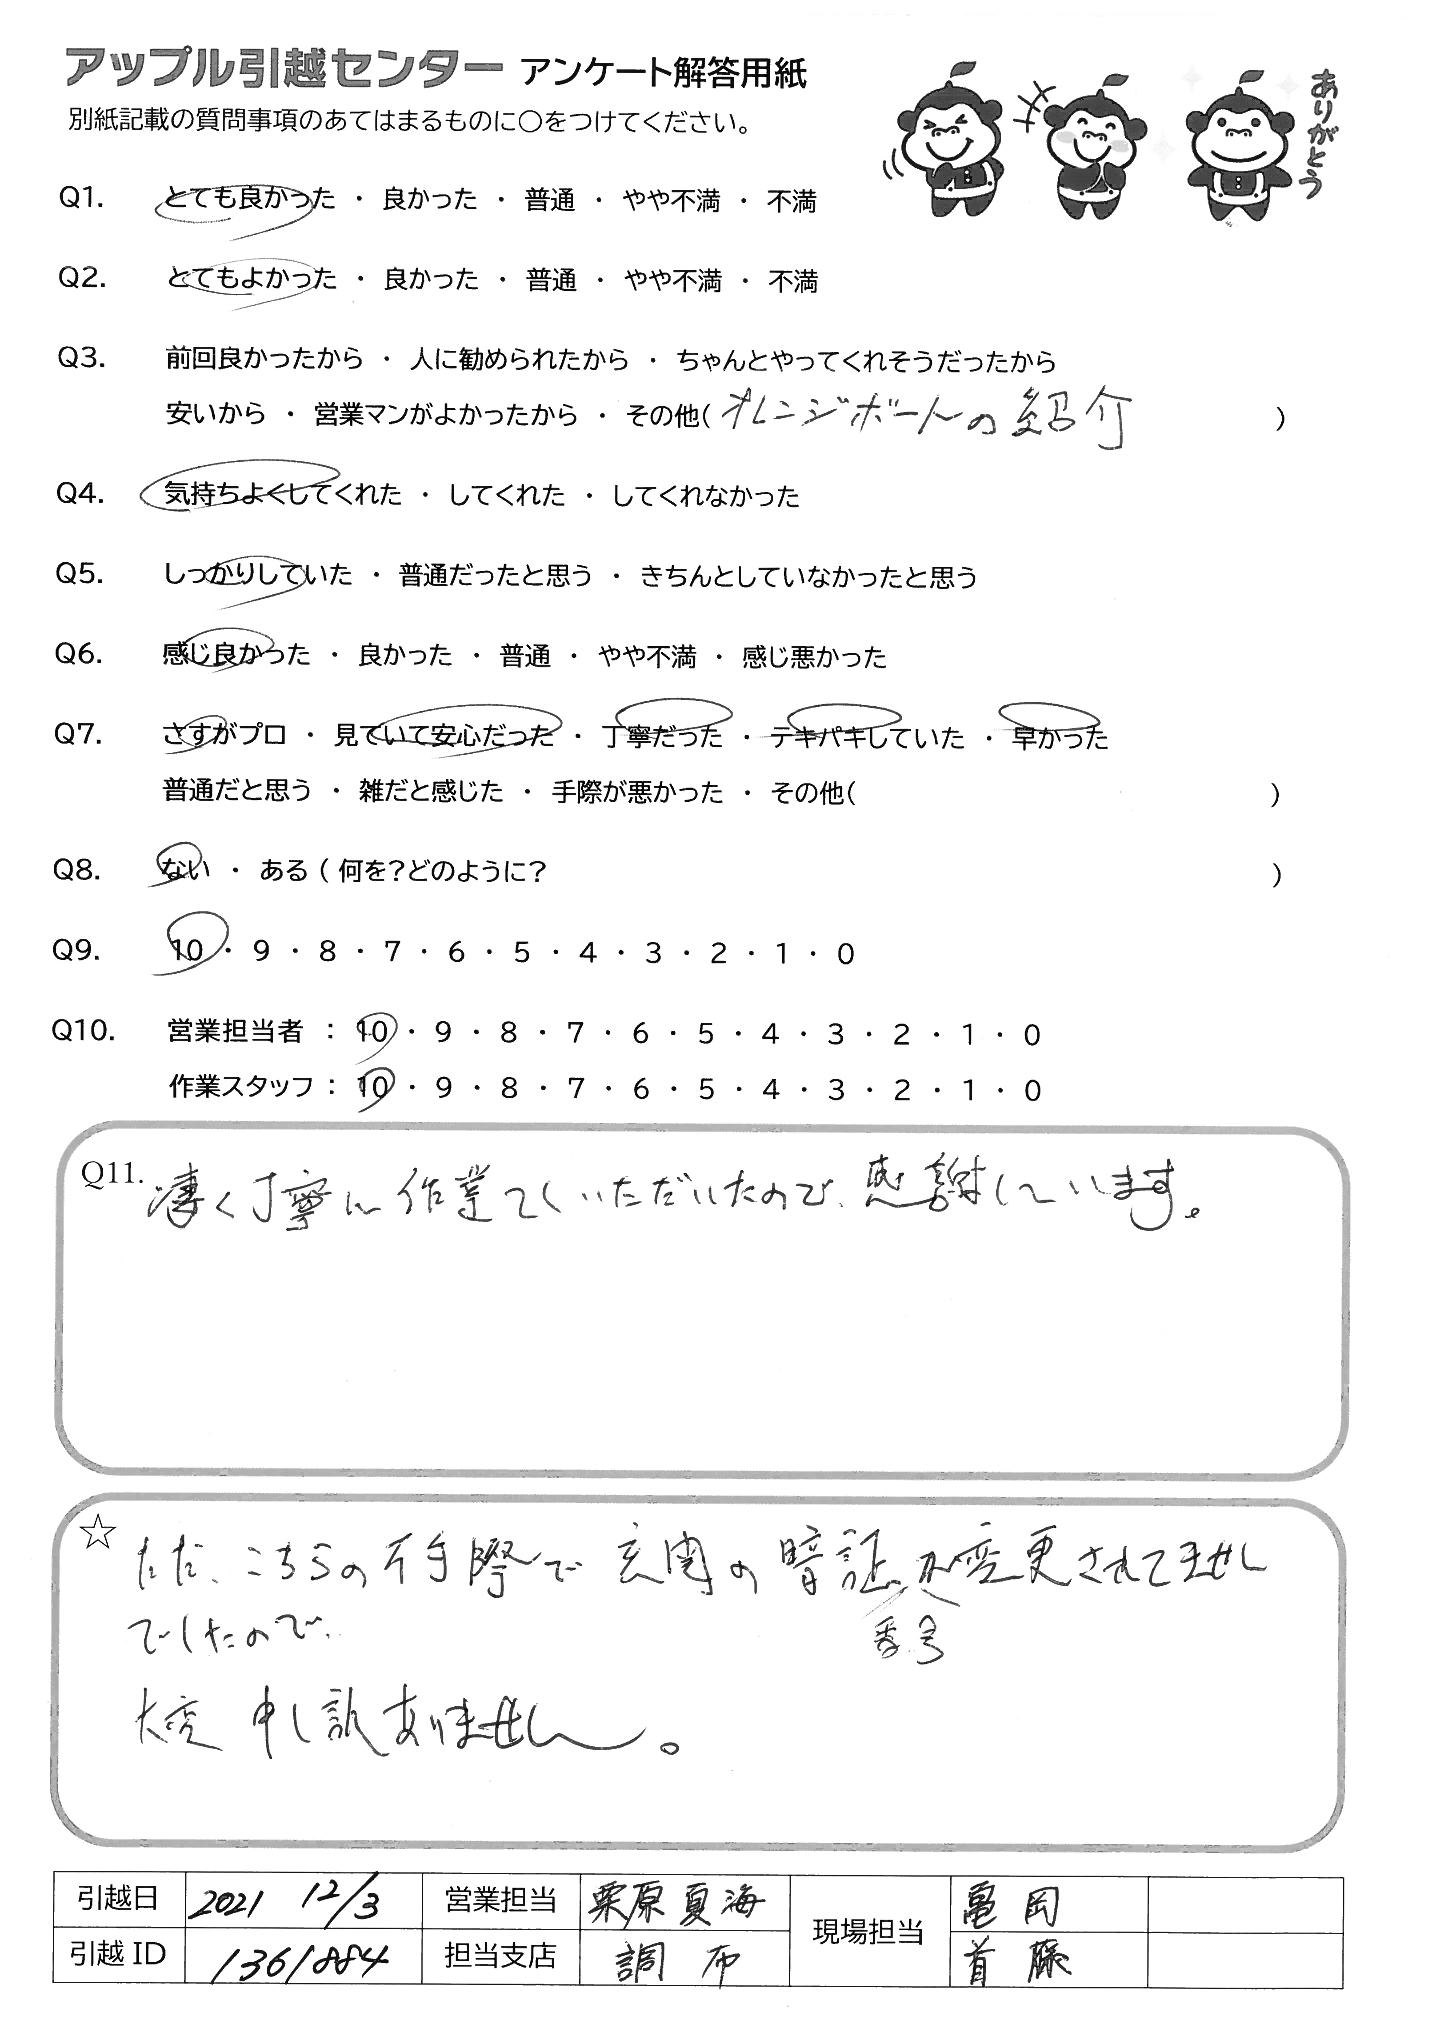 アップル引越センター アンケート解答用紙
別紙記載の質問事項のあてはまるものに○をつけてください。
ありがとう
Q1. とても良かった ・ 良かった ・ 普通 ・ やや不満 ・ 不満
Q2. とてもよかった ・ 良かった ・ 普通 ・ やや不満 ・ 不満
Q3. 前回良かったから ・ 人に勧められたから ・ ちゃんとやってくれそうだったから
安いから ・ 営業マンがよかったから ・ その他( オレンジボートの紹介 )
Q4. 気持ちよくしてくれた ・ してくれた ・ してくれなかった
Q5. しっかりしていた ・ 普通だったと思う ・ きちんとしていなかったと思う
Q6. 感じ良かった ・ 良かった ・ 普通 ・ やや不満 ・ 感じ悪かった
Q7. さすがプロ ・ 見ていて安心だった ・ 丁寧だった ・ テキパキしていた ・ 早かった
普通だと思う ・ 雑だと感じた ・ 手際が悪かった ・ その他( )
Q8. ない ・ ある ( 何を?どのように? )
Q9. 10 ・ 9 ・ 8 ・ 7 ・ 6 ・ 5 ・ 4 ・ 3 ・ 2 ・ 1 ・ 0
Q10. 営業担当者 : 10 ・ 9 ・ 8 ・ 7 ・ 6 ・ 5 ・ 4 ・ 3 ・ 2 ・ 1 ・ 0
作業スタッフ : 10 ・ 9 ・ 8 ・ 7 ・ 6 ・ 5 ・ 4 ・ 3 ・ 2 ・ 1 ・ 0
Q11. 凄く丁寧に作業していただいたので、感謝しています。
☆ ただ、こちらの不手際で玄関の暗証番号が変更されてませんし
でしたので、
大変申し訳ありません。
引越日 2021 12/3 営業担当 栗原夏海 現場担当 亀岡
引越ID 1361884 担当支店 調布 首藤